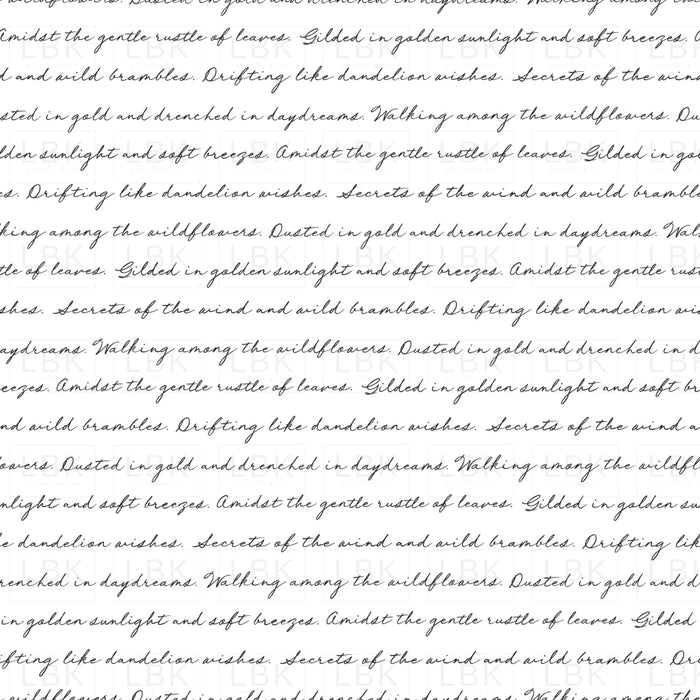 wildflowers. Dusted in gold and drenched in daydreams. Walking among the
Amidst the gentle rustle of leaves. Gilded in golden sunlight and soft breezes. A
d and wild brambles. Drifting like dandelion wishes. Secrets of the win
sted in gold and drenched in daydreams. Walking among the wildflowers. Du
lden sunlight and soft breezes. Amidst the gentle rustle of leaves. Gilded in go
es. Drifting like dandelion wishes. Secrets of the wind and wild bramble
king among the wildflowers. Dusted in gold and drenched in daydreams. Wal
tle of leaves. Gilded in golden sunlight and soft breezes. Amidst the gentle rust
shes. Secrets of the wind and wild brambles. Drifting like dandelion wis
aydreams. Walking among the wildflowers. Dusted in gold and drenched in d
eezes. Amidst the gentle rustle of leaves. Gilded in golden sunlight and soft br
nd wild brambles. Drifting like dandelion wishes. Secrets of the wind a
owers. Dusted in gold and drenched in daydreams. Walking among the wildfl
nlight and soft breezes. Amidst the gentle rustle of leaves. Gilded in golden su
ke dandelion wishes. Secrets of the wind and wild brambles. Drifting lik
renched in daydreams. Walking among the wildflowers. Dusted in gold and d
in golden sunlight and soft breezes. Amidst the gentle rustle of leaves. Gilded
ifting like dandelion wishes. Secrets of the wind and wild brambles. Dri
wildflowers. Dusted in gold and drenched in daydreams. Walking among the
LBK